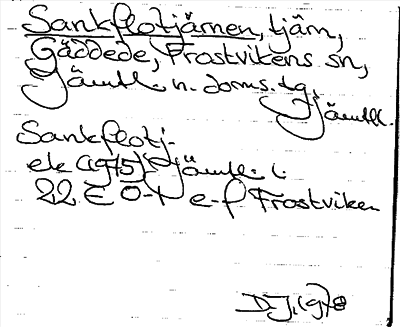 Sankflotjärnen, tjärn,
Gäddede, Frostvikens sn,
Jämtl. n. doms. tg,
Jämtl.
Sankflotj-
ek (1975) Jämtl. l.
22 E 0-1 e-f Frostviken
D.J. 1978